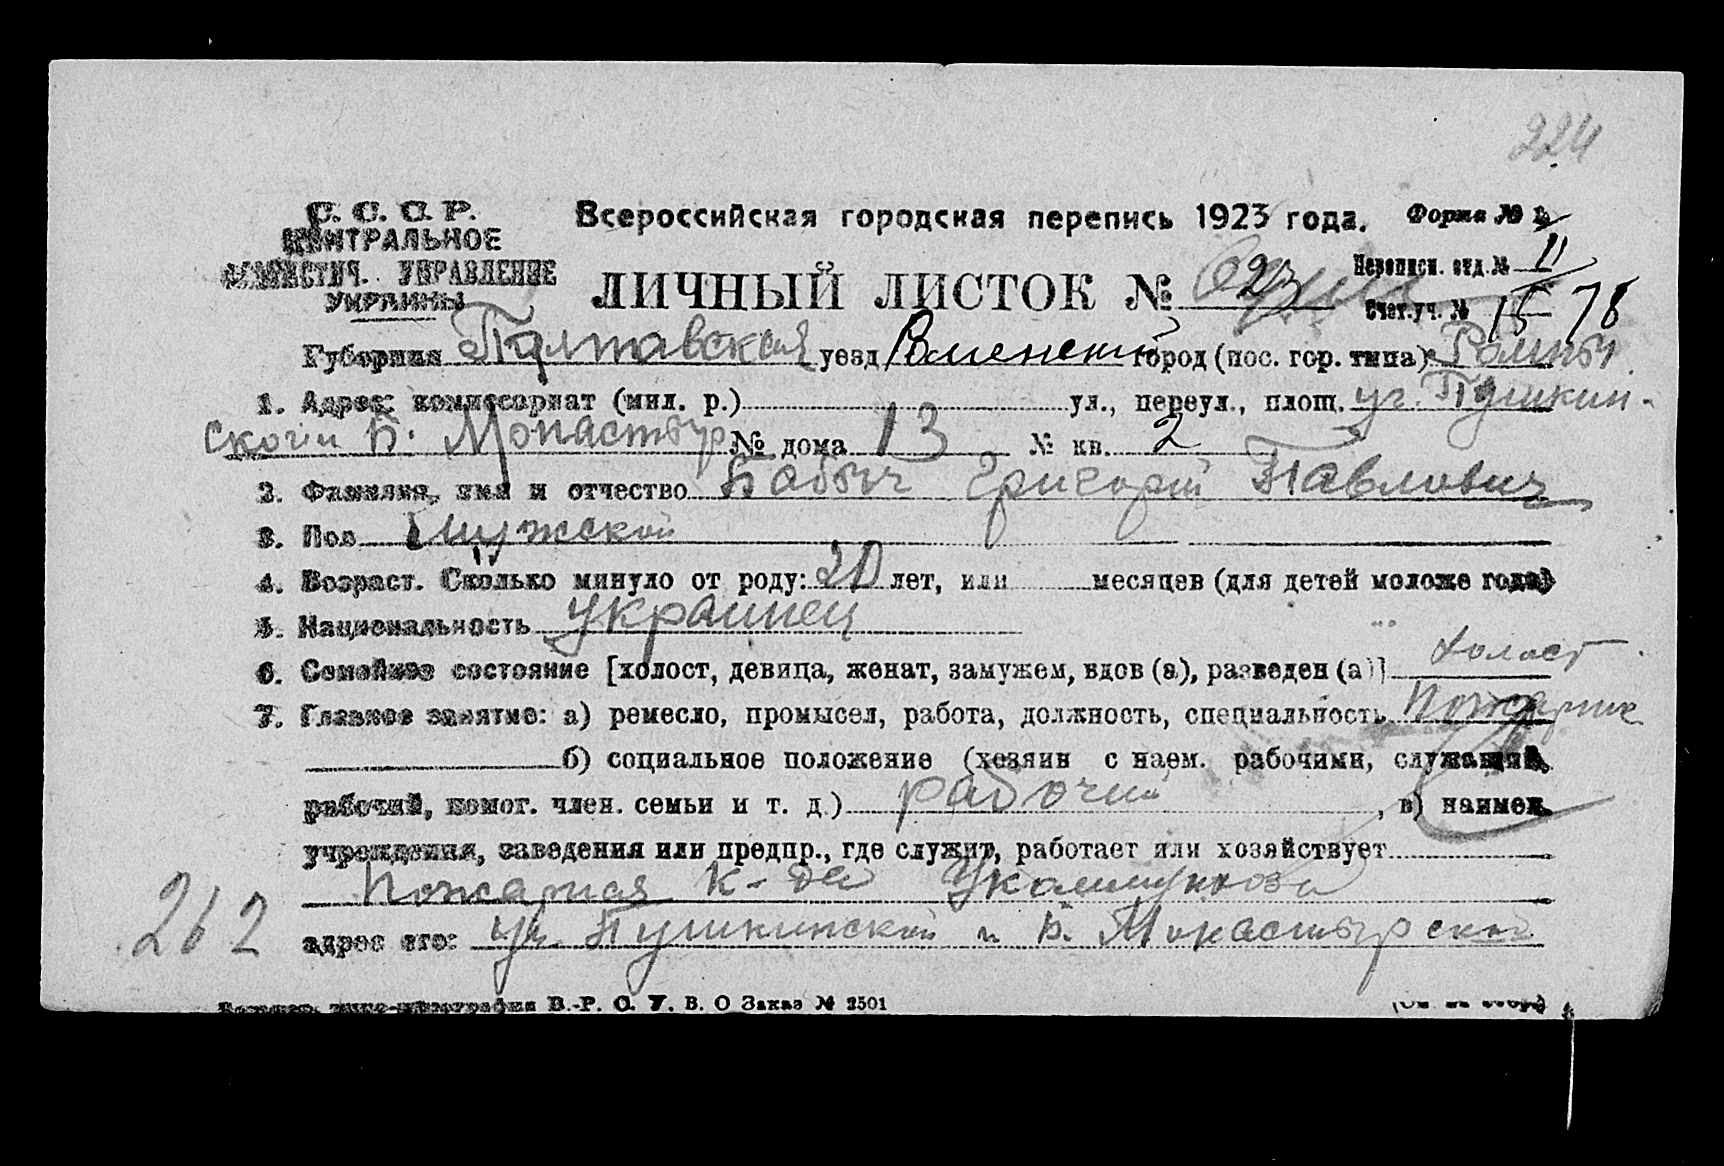 224
С. С. С. Р.
ЦЕНТРАЛЬНОЕ
СТАТИСТИЧ. УПРАВЛЕНИЕ
УКРАИНЫ
Всероссийская городская перепись 1923 года.
Форма №
ЛИЧНЫЙ ЛИСТОК № 23
Переписн. отд. № II
Счет. уч. № 15 78
Губерния Полтавская уезд Роменский город (пос. гор. типа) Ромны
1. Адрес: комиссариат (мил. р.) ул., переул., площ. уг. Пушкин-
ской и Б. Монастыр № дома 13 № кв. 2
2. Фамилия, имя и отчество Бабыч Григорий Павлович
3. Пол Мужской
4. Возраст. Сколько минуло от роду: 20 лет, или месяцев (для детей моложе года)
5. Национальность украинец
6. Семейное состояние [холост, девица, женат, замужем, вдов (а), разведен (а)] холост
7. Главное занятие: а) ремесло, промысел, работа, должность, специальность Пожарник
б) социальное положение (хозяин с наем. рабочими, служащий,
рабочий, помог. член. семьи и т. д.) рабочий, в) наимен.
учреждения, заведения или предпр., где служит, работает или хозяйствует
Пожарная к-да Укоммунхоза
262 адрес его: уг. Пушкинской и Б. Монастырской
В.-Р. О. У. В. О Заказ № 2501